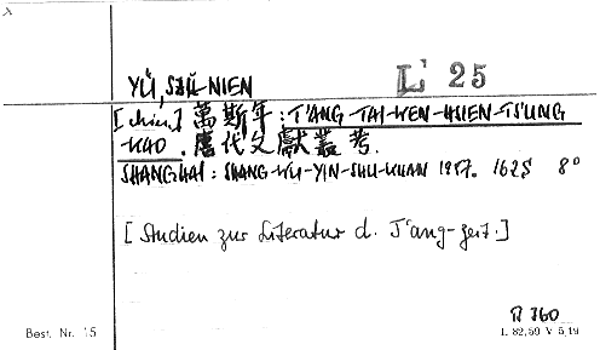 YÜ, SZŬ-NIEN L' 25
[chin.] 萬斯年 : T'ANG-TAI-WEN-HSIEN-TS'UNG
-KAO. 唐代文獻叢考.
SHANGHAI : SHANG-WU-YIN-SHU-KUAN 1957. 162 S 8°
[Studien zur Literatur d. T'ang-zeit.]
760
Best. Nr. 15 I. 82,59 V 5,19